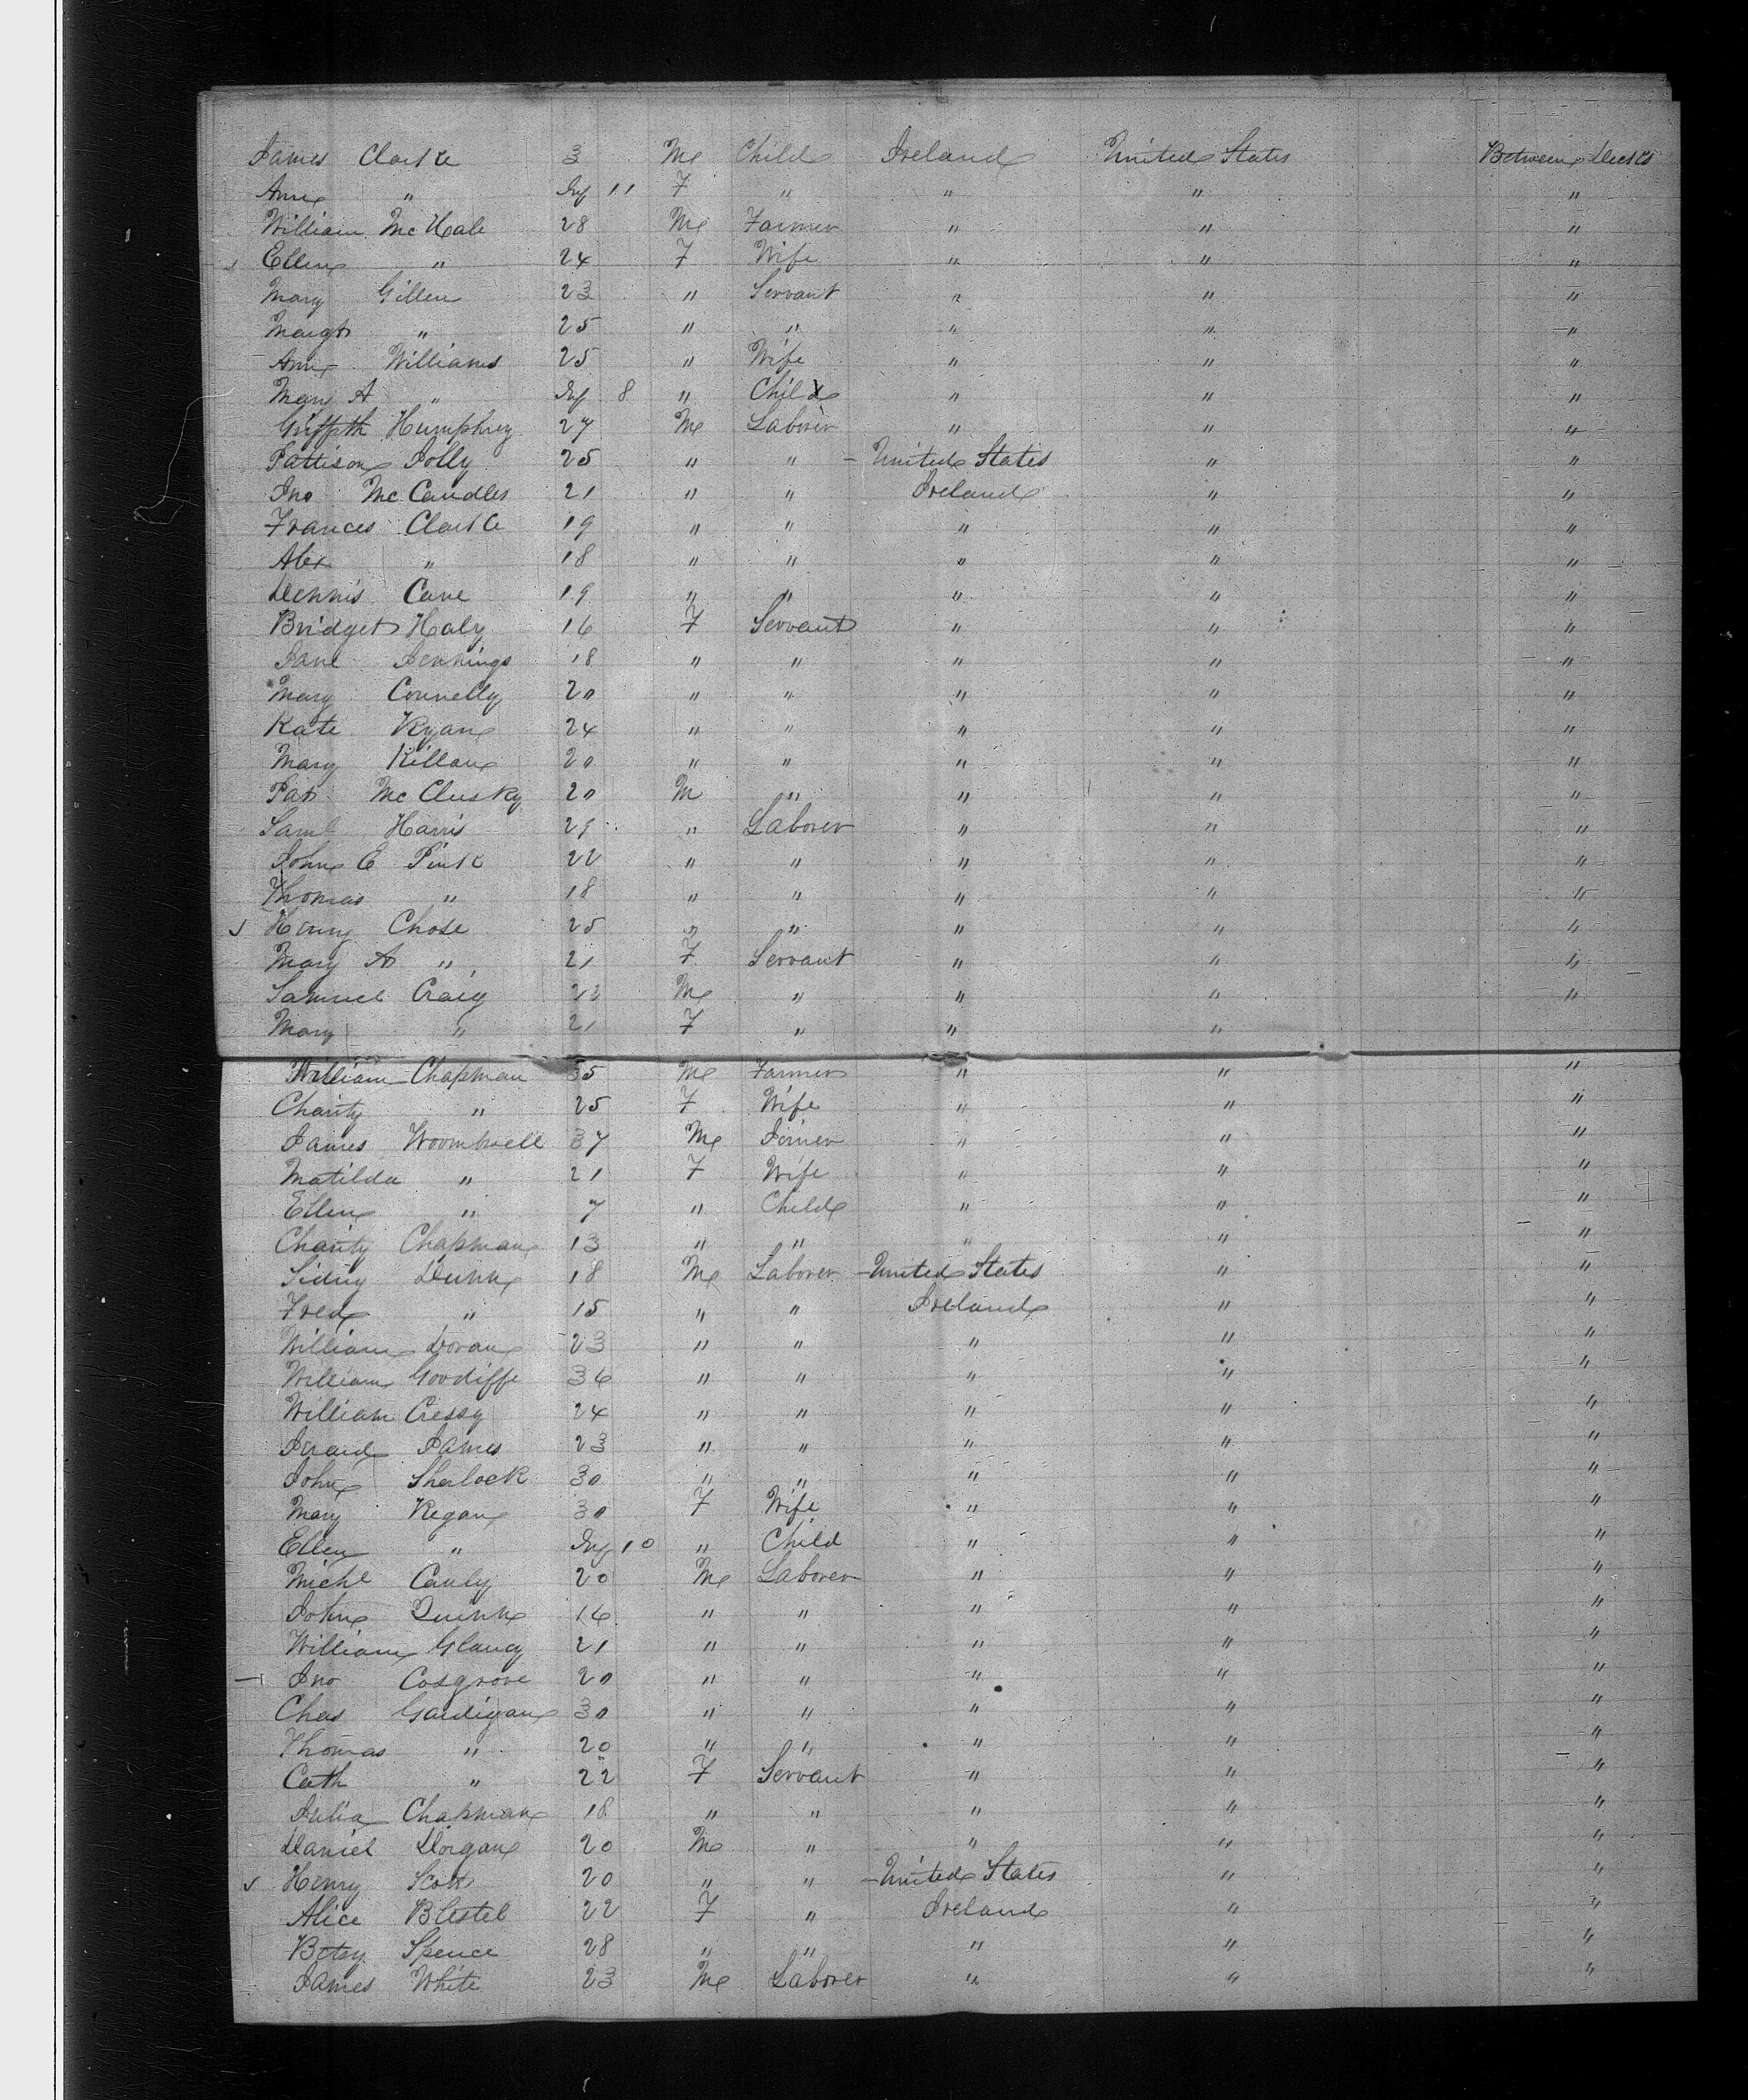 James Clarke 3 M Child Ireland United States Between Decks
Ann " Inf 11 F " " " "
William McHale 28 M Farmer " " "
Ellen " 24 F Wife " " "
Mary Gillen 23 " Servant " " "
Margt " 25 " " " " "
Ann Williams 25 " Wife " " "
Mary A " Inf 8 " Child " " "
Griffith Humphrey 27 M Laborer " " "
Pattison Jolly 25 " " United States " "
Jno McCandles 21 " " Ireland " "
Frances Clarke 19 " " " " "
Alex " 18 " " " " "
Dennis Cane 19 " " " " "
Bridget Haly 16 F Servant " " "
Jane Jennings 18 " " " " "
Mary Connelly 20 " " " " "
Kate Ryan 24 " " " " "
Mary Killan 20 " " " " "
Pat McClusky 20 M " " " "
Saml Harris 29 " Laborer " " "
John E Pink 22 " " " " "
Thomas " 18 " " " " "
Henry Chose 25 " " " " "
Mary A " 21 F Servant " " "
Samuel Craig 22 M " " " "
Mary " 21 F " " "
William Chapman 35 M Farmer " " "
Charity " 25 F Wife " " "
James Woombwell 37 M Joiner " " "
Matilda " 21 F Wife " " "
Ellen " 7 " Child " " "
Charity Chapman 13 " " " " "
Sidny Dunn 18 M Laborer United States " "
Fred " 15 " " Ireland " "
William Doran 23 " " " " "
William Goodiffe 36 " " " " "
William Cressy 24 " " " " "
James 23 " " " " "
John Sherlock 30 " " " " "
Mary Regan 30 F Wife " " "
Ellen " Inf 10 " Child " " "
Michl Cauly 20 M Laborer " " "
John Quinn 16 " " " " "
William Glancy 21 " " " " "
Jno Cosgrove 20 " " " " "
Chas Gardigan 30 " " " " "
Thomas " 20 " " " " "
Cath " 22 F Servant " " "
Julia Chapman 18 " " " " "
Daniel Dorgan 20 M " " " "
Henry Scott 20 " " United States " "
Alice Blestel 22 F " Ireland " "
Betsy Spence 28 " " " " "
James White 23 M Laborer " " "